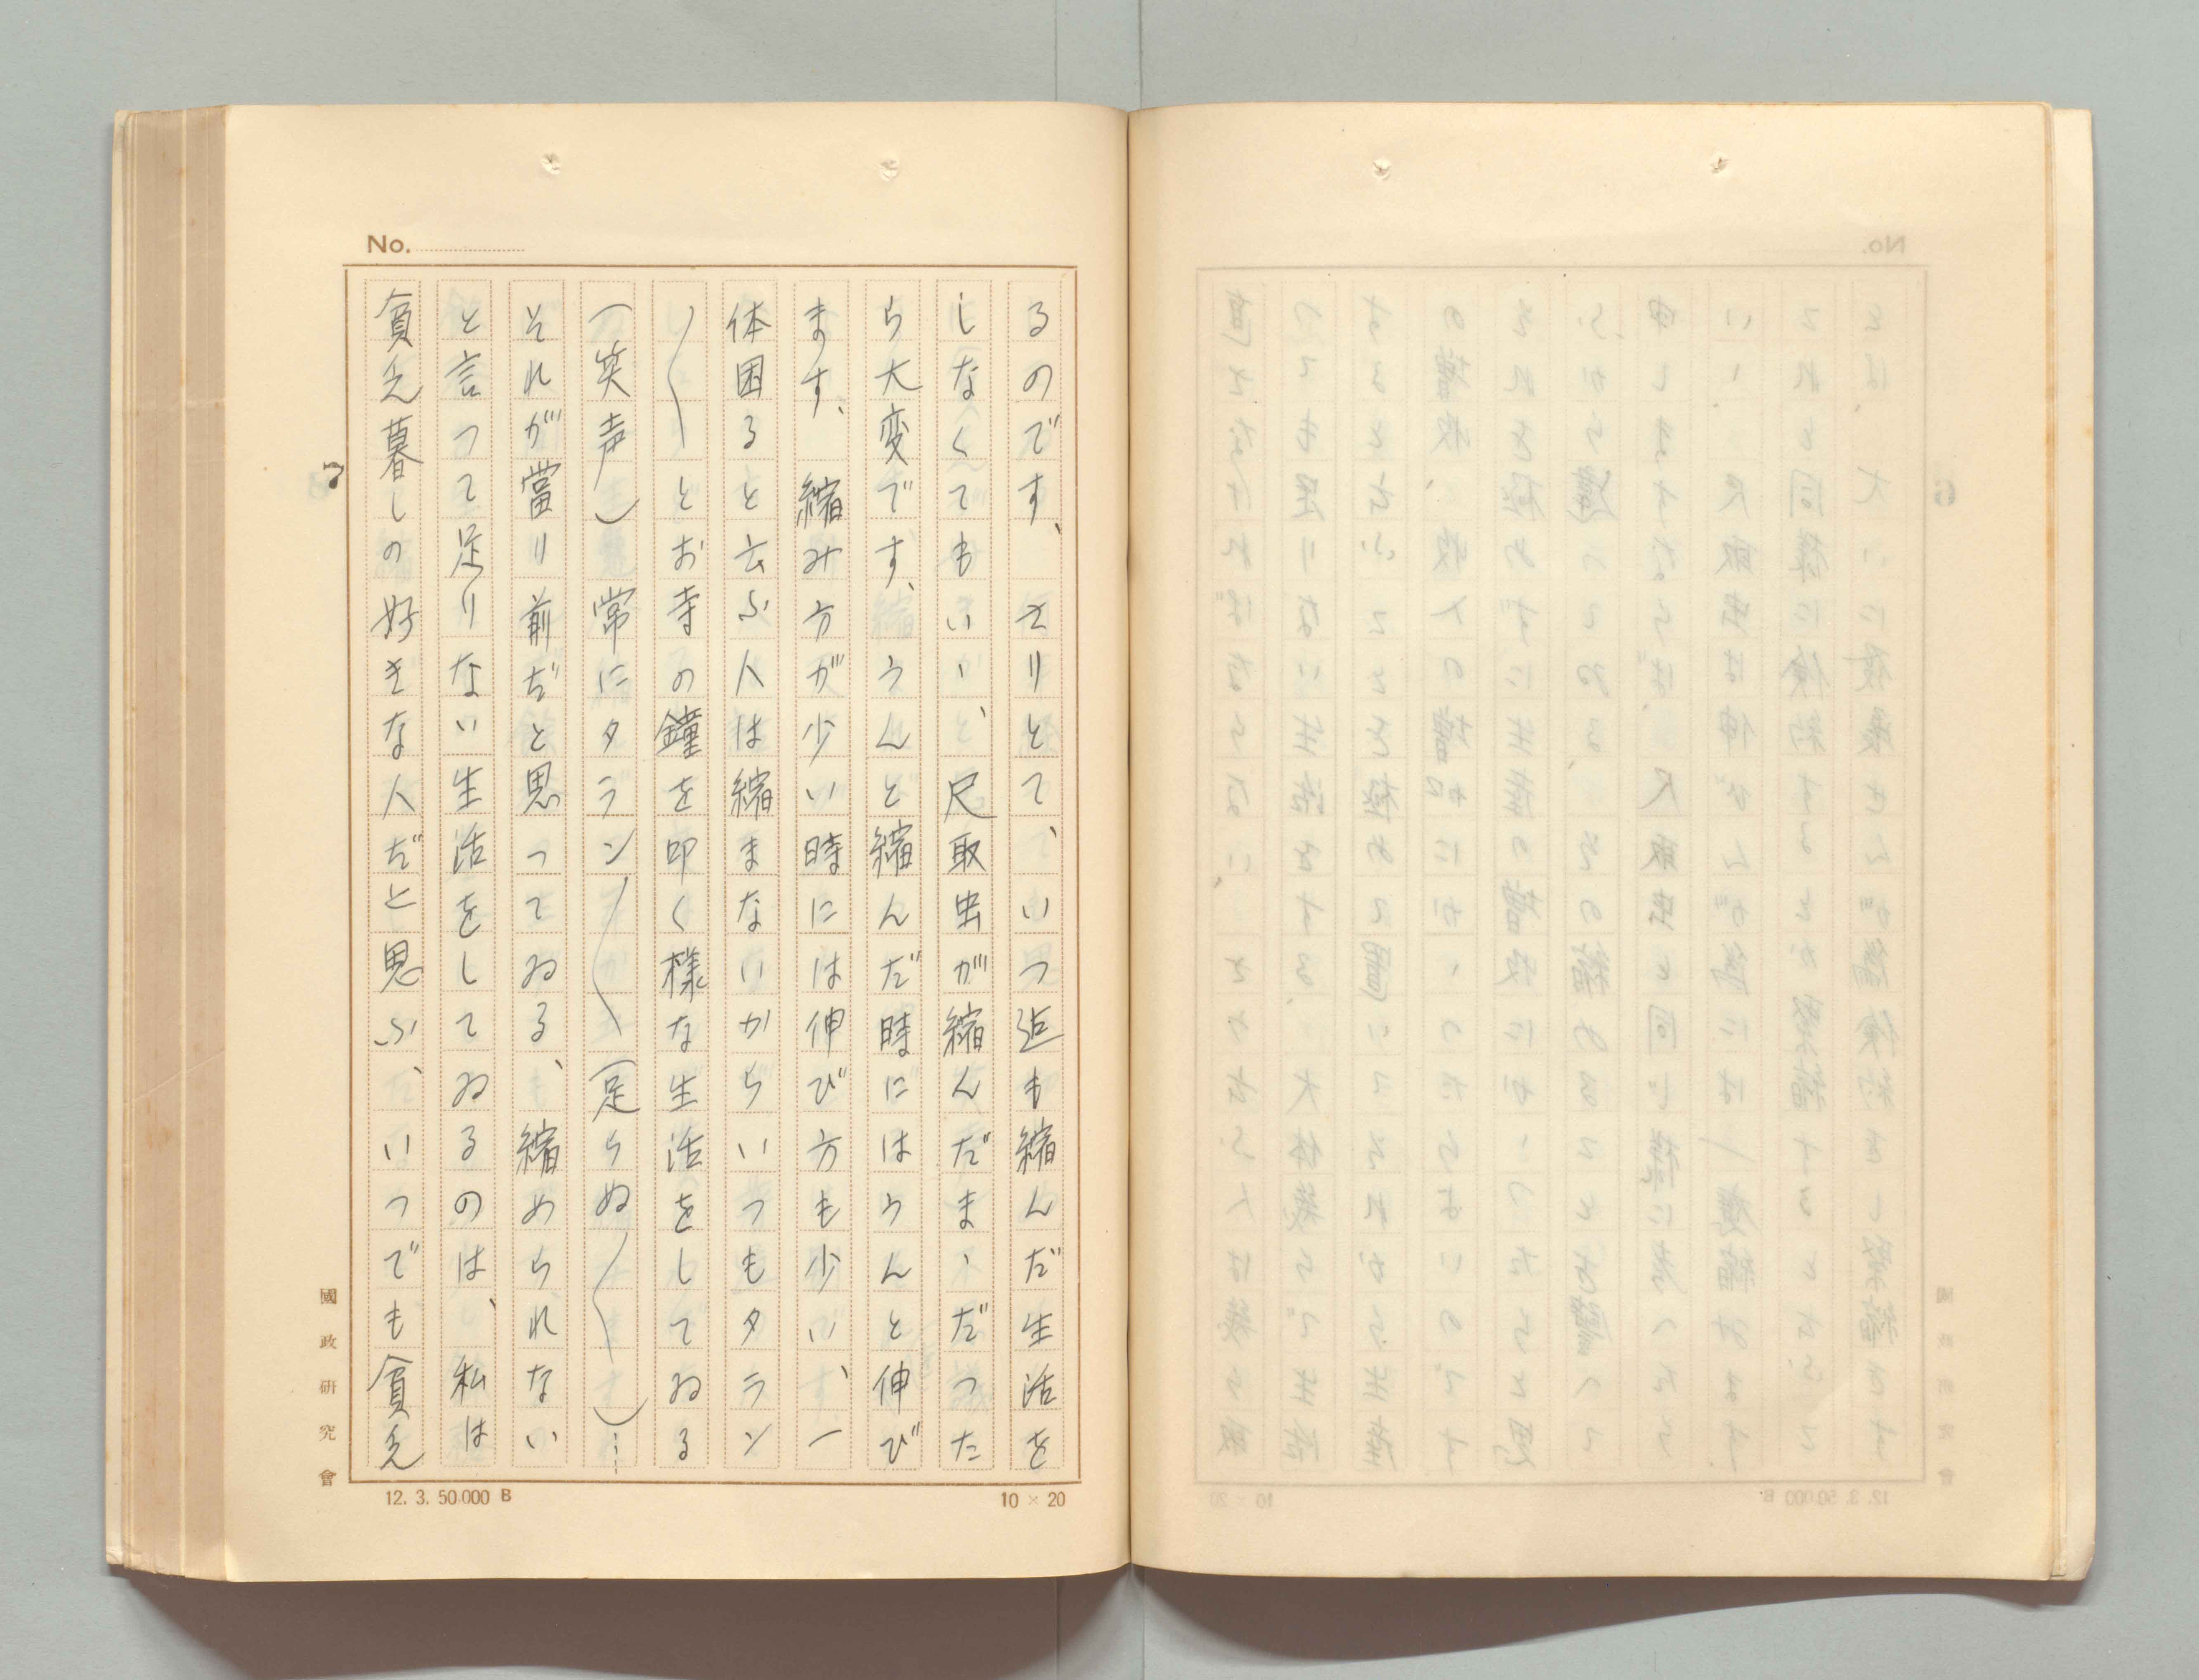 No.
るのです、さりとて、いつ迄も縮んだ生活を
しなくてもいゝ、尺取虫が縮んだまゝだつた
ら大変です、うんと縮んだ時にはうんと伸び
ます、縮み方が少い時には伸び方も少い、一
体困ると云ふ人は縮まないからいつもタラン
〳〵とお寺の鐘を叩く様な生活をしてゐる
(笑声)常にタラン〳〵(足らぬ〳〵)……
それが當り前だと思つてゐる、縮められない
と言つて足りない生活をしてゐるのは、私は
貧乏暮しの好きな人だと思ふ、いつでも貧乏
7
國政研究會
12. 3. 50.000 B
10 × 20